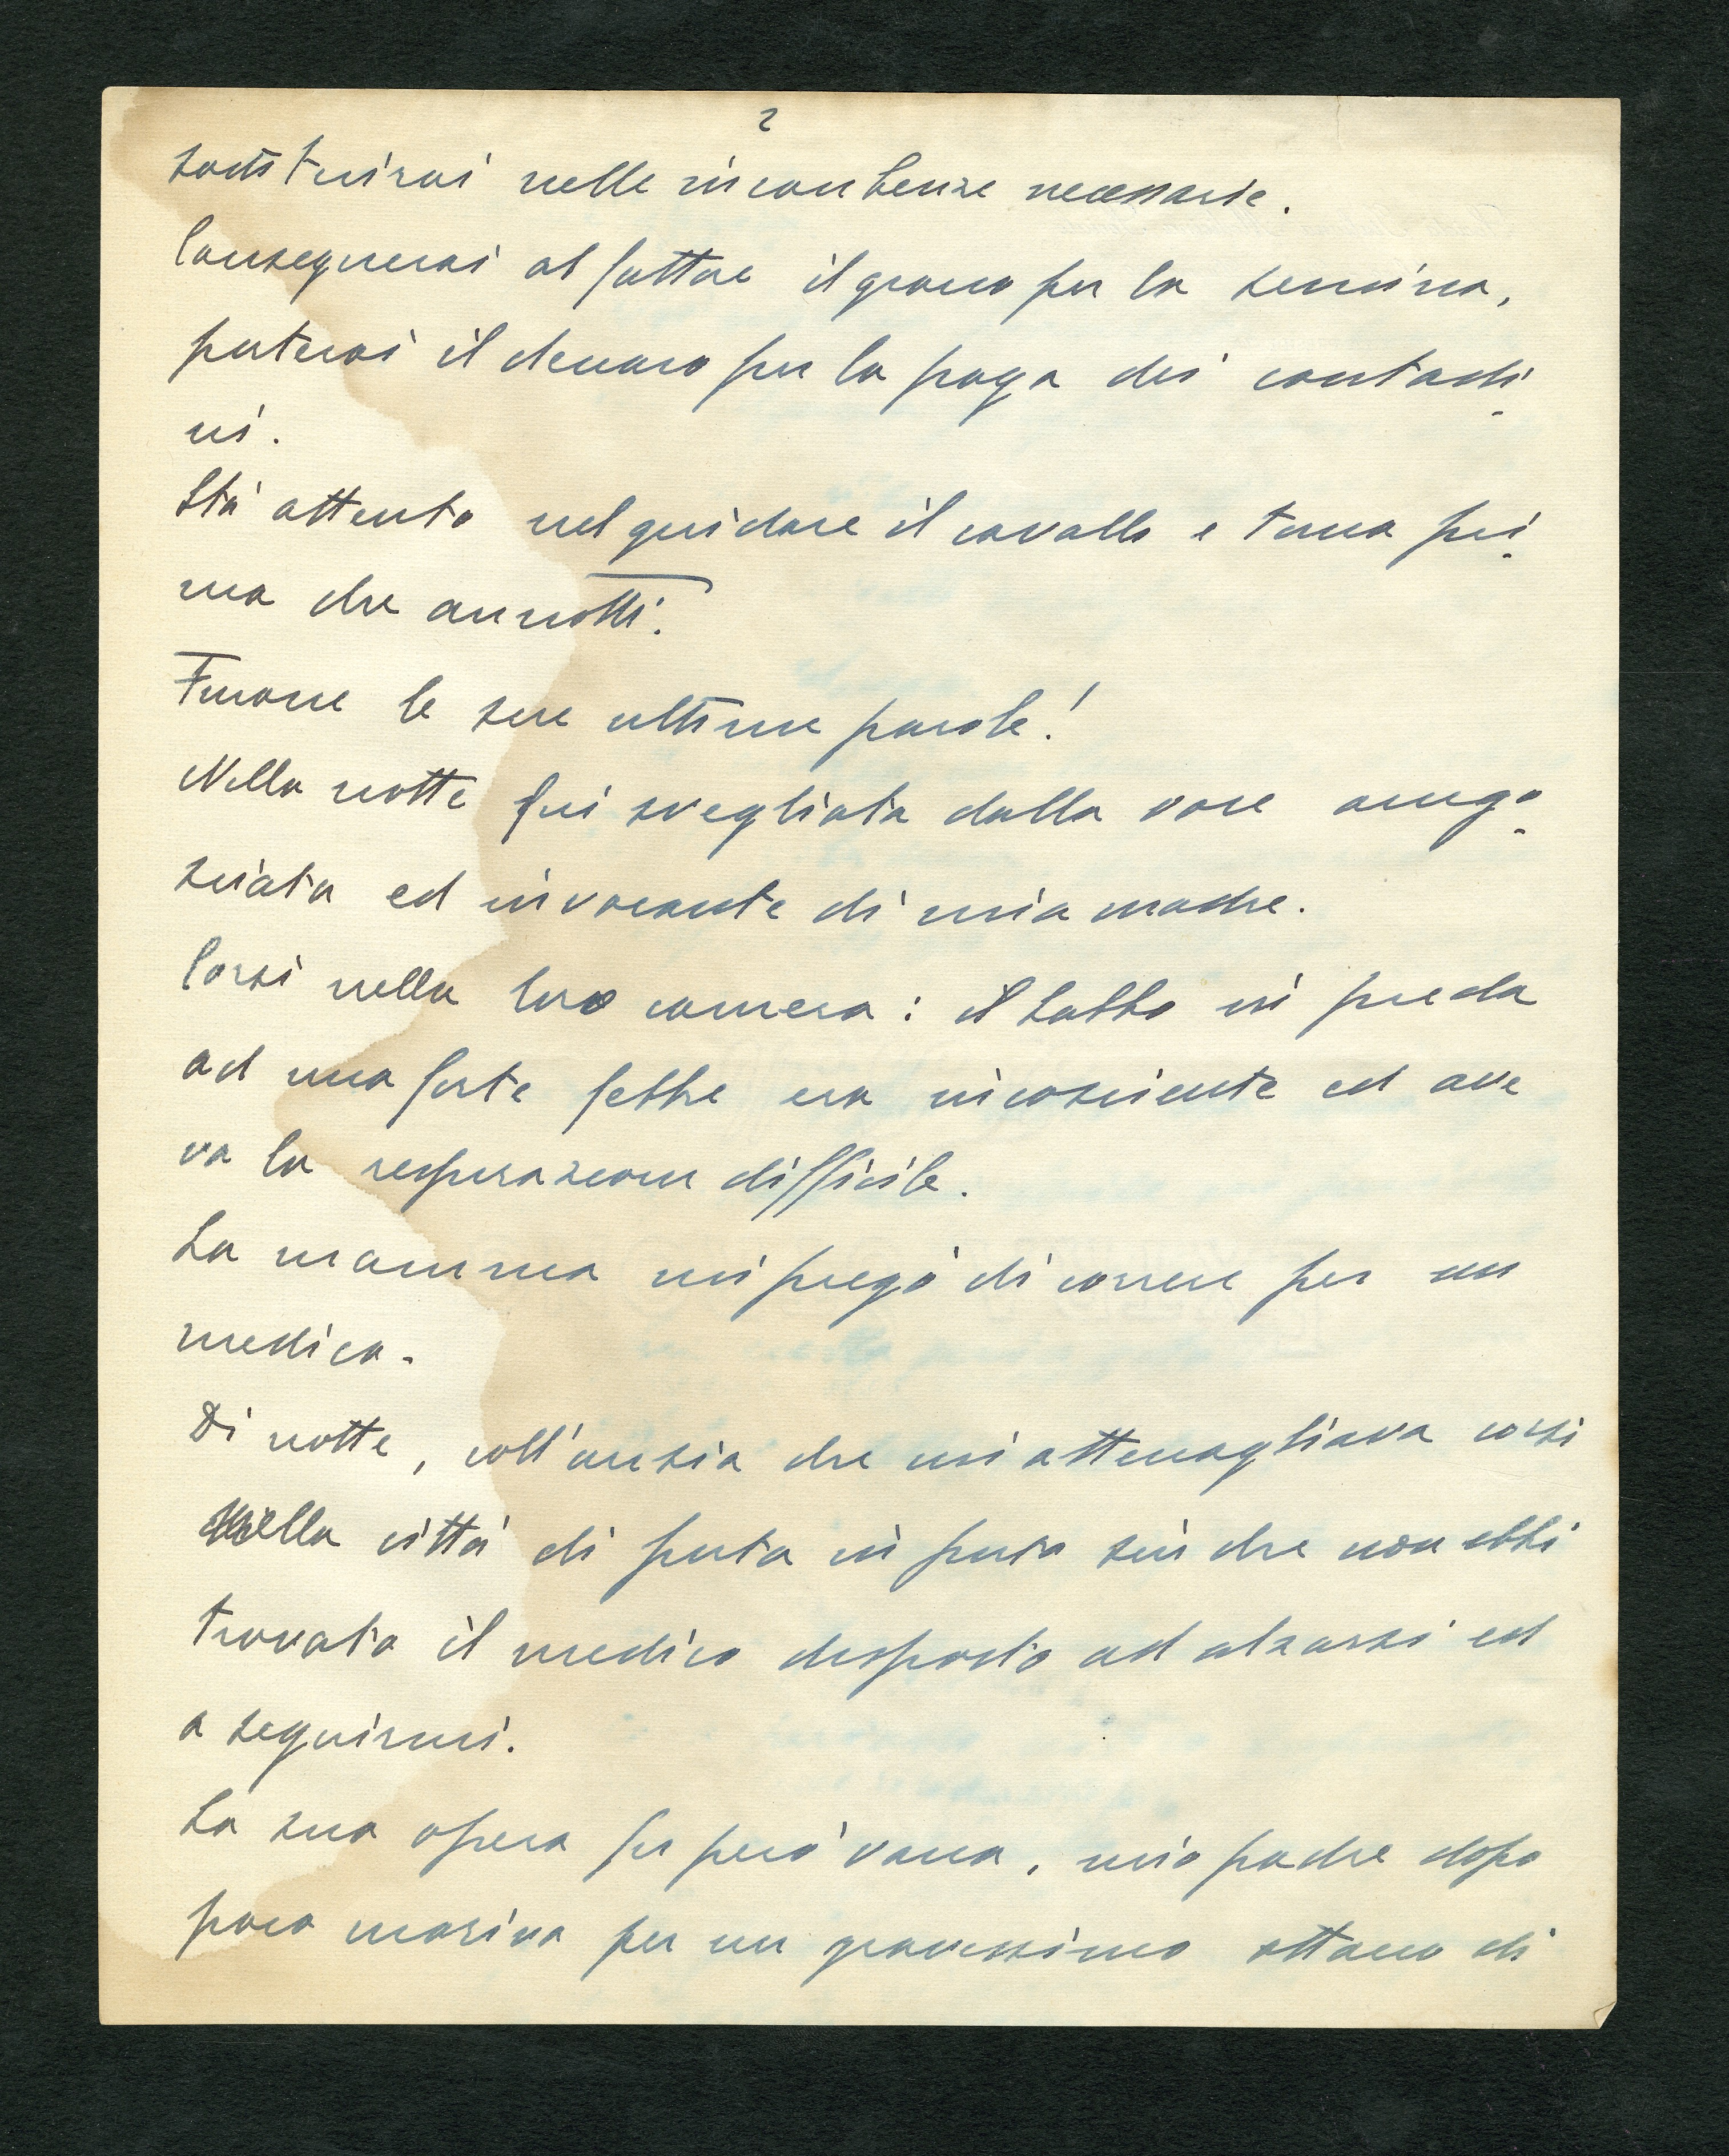 2
sostituirai nelle incombenze necessarie.
Consegnerai al fattore il grano per la semina,
porterai il denaro per la paga dei contadi-
ni.
Stà attento nel guidare il cavallo e torna pri-
ma che annotti.
Furono le sue ultime parole!
Nella notte fui svegliata dalla voce ango-
sciata ed invocante di mia madre.
Corsi nella loro camera: il babbo in preda
ad una forte febbre era incosciente ed ave
va la respirazione difficile.
La mamma mi pregò di correre per un
medico.
Di notte, coll'ansia che mi attenagliava corsi
nella città di porta in porta sin che non ebbi
trovato il medico disposto ad alzarsi ed
a seguirmi.
La sua opera fu però vana, mio padre dopo
poco moriva per un gravissimo attacco di